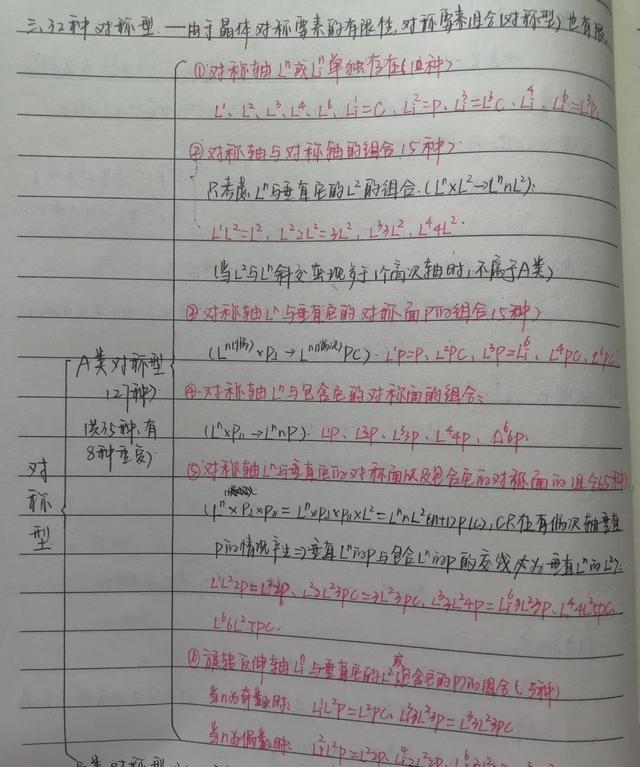 三、32种对称型. —由于晶体对称要素的有限性,对称要素组合(对称型)也有限
①对称轴Lⁿ或Lᵢⁿ单独存在(10种)
L¹、L²、L³、L⁴、L⁶、Lᵢ¹=C、Lᵢ²=P、Lᵢ³=L³C、Lᵢ⁴、Lᵢ⁶=L³P
②对称轴与对称轴的组合(5种)
只考虑Lⁿ与垂直它的L²的组合.(Lⁿ×L²→LⁿnL²):
L¹L²=L²、L²2L²=3L²、L³3L²、L⁴4L²
(当L²与Lⁿ斜交 出现多于1个高次轴时,不属于A类)
③对称轴Lⁿ与垂直它的对称面P的组合(5种)
(Lⁿ⁽偶⁾×P⊥→Lⁿ⁽偶次⁾PC). L¹P=P、L²PC、L³P=Lᵢ⁶、L⁴PC、L⁶PC
A类对称型
(27种)
(共35种,有
8种重复)
④.对称轴Lⁿ与包含它的对称面的组合:
(Lⁿ×P∥→LⁿnP). L¹P、L²2P、L³3P、L⁴4P、L⁶6P
对称型
⑤对称轴Lⁿ与垂直它的对称面以及包含它的对称面的组合(5种)
(Lⁿ×P⊥×P∥=Lⁿ×P⊥×P∥×L²=LⁿnL²(n+1)P(C),C只在有偶次轴垂直
P的情况产生⇒垂直Lⁿ的P与包含Lⁿ的P的交线必为垂直Lⁿ的L²):
L¹L²2P=L²2P、L²2L²3PC=3L²3PC、L³3L²4P=Lᵢ⁶3L²3P、L⁴4L²5PC、
L⁶6L²7PC.
⑥旋转反伸轴Lᵢⁿ与垂直它的L²(或包含它的P)的组合(5种)
当n为奇数时: Lᵢ¹L²P=L²PC、Lᵢ³3L²3P=L³3L²3PC
当n为偶数时: Lᵢ²L²P=L²2P、Lᵢ⁴2L²2P、